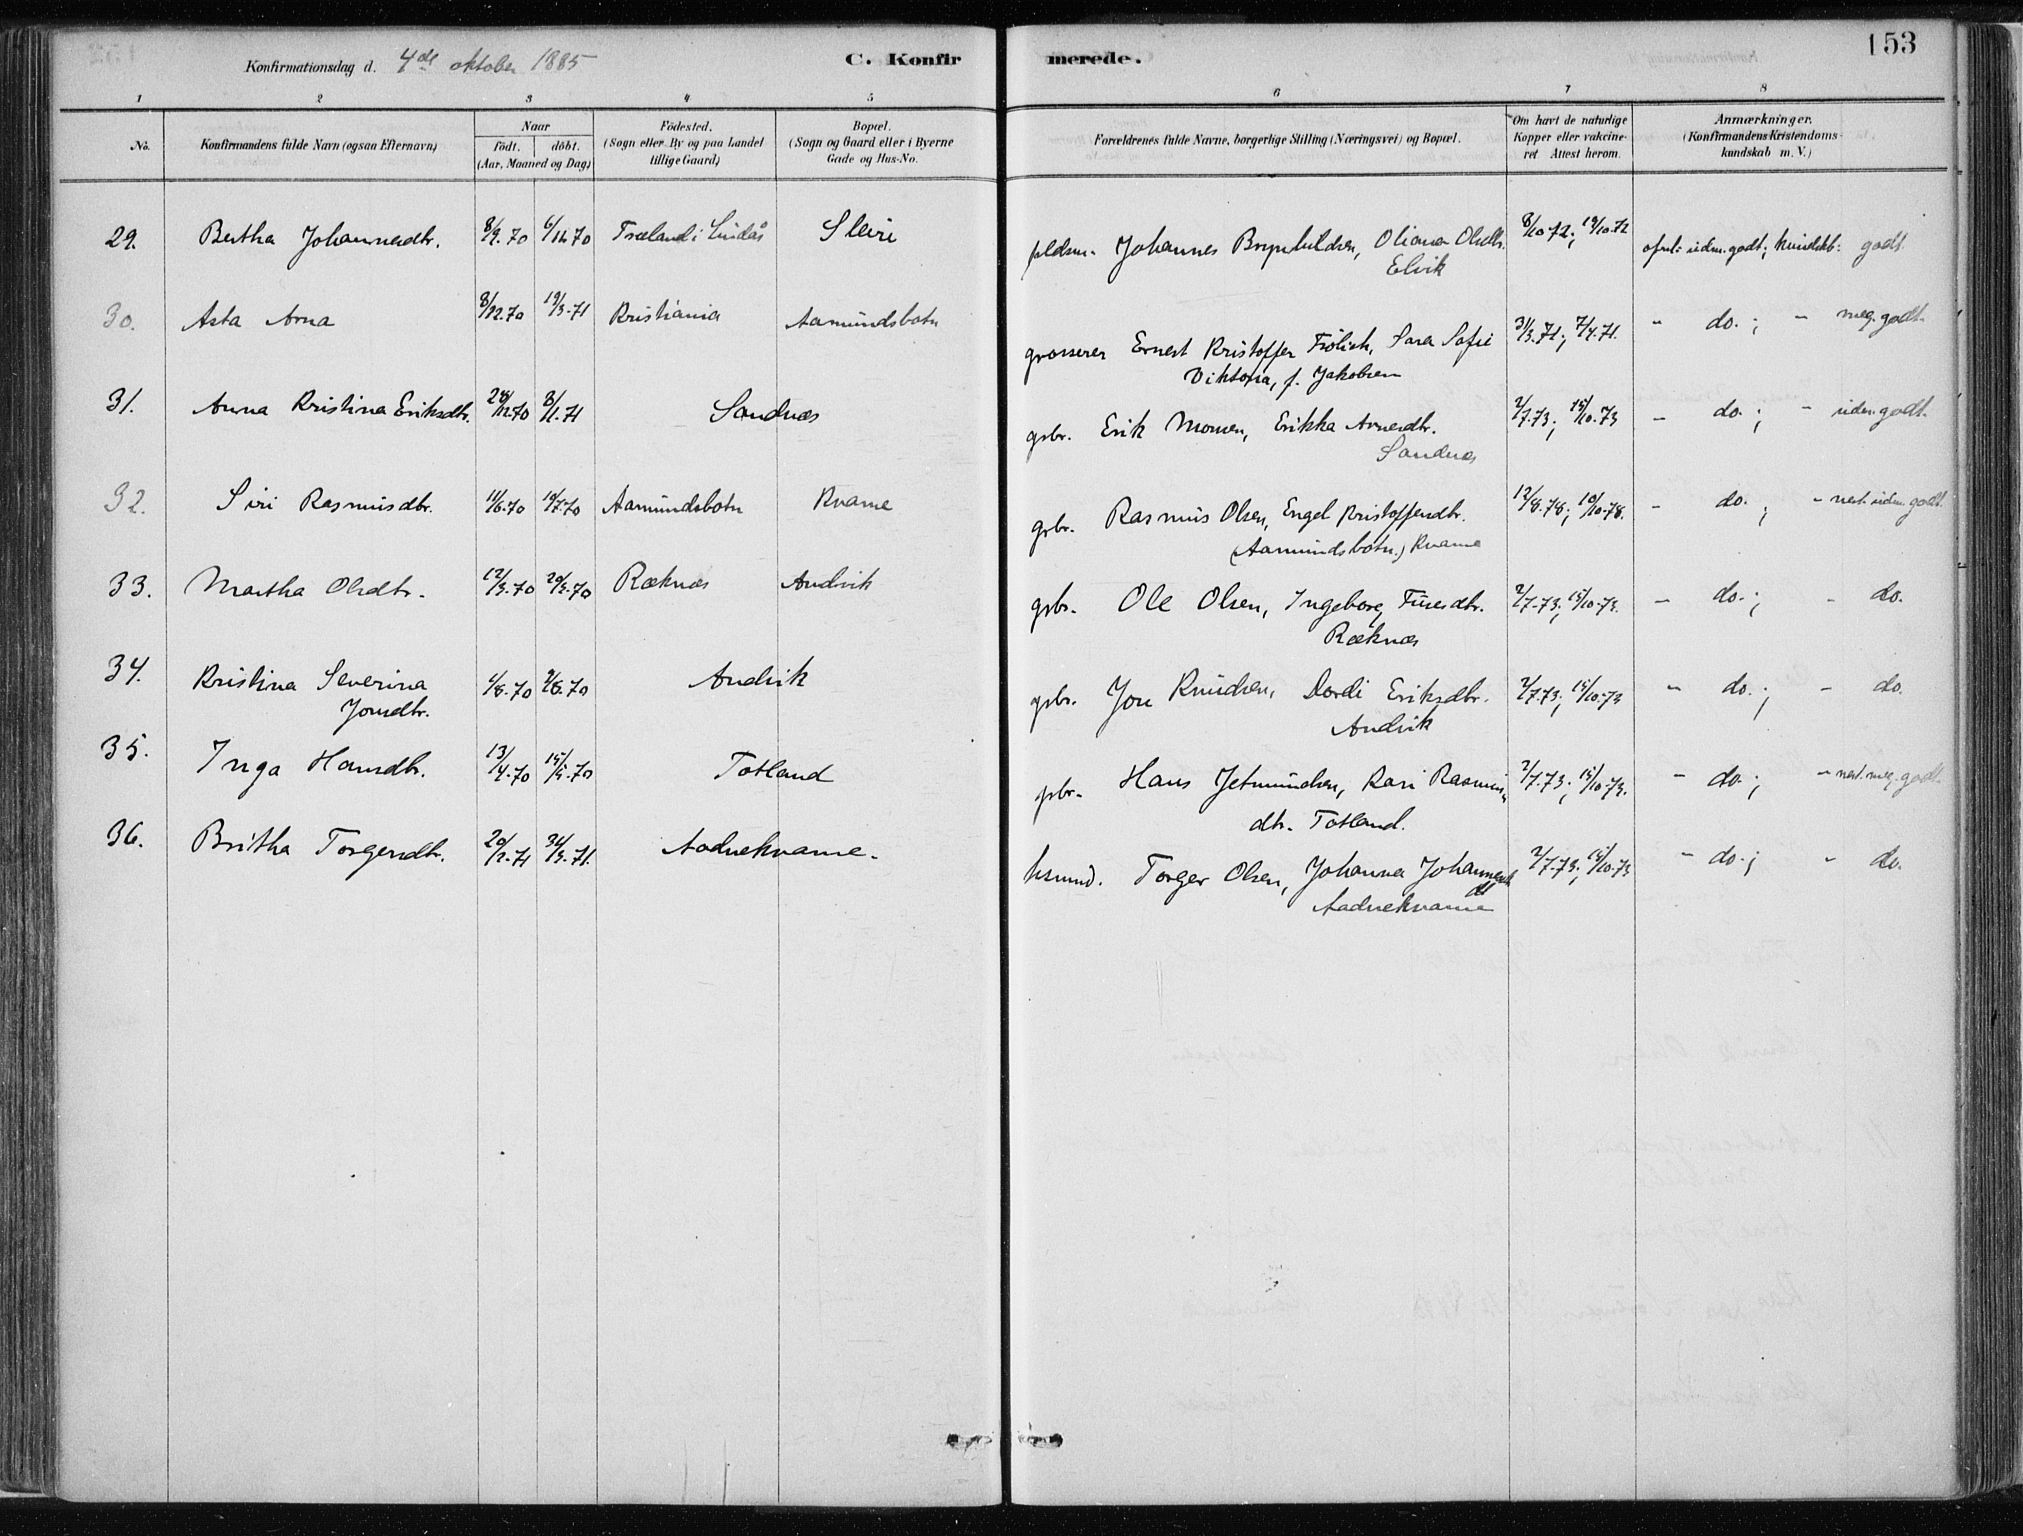 Konfirmationsdag d. 4de oktober 1885
C. Konfirmerede.
153
1 2 3 4 5 6 7 8
No.
Konfirmandens fulde Navn (ogsaa Efternavn)
Naar
födt. döbt.
(Aar, Maaned og Dag)
Födested.
(Sogn eller By og paa Landet
tillige Gaard)
Bopæl.
(Sogn og Gaard eller i Byerne
Gade og Hus-No.
Forældrenes fulde Navne, borgerlige Stilling (Næringsvei) og Bopæl.
Om havt de naturlige
Kopper eller vakcine-
ret Attest herom.
Anmærkninger.
(Konfirmandens Kristendoms-
kundskab m. V.)
29. Bertha Johannesdtr. 8/9.70 6/11.70 Træland i Lindås Sleire
pldsm. Johannes Brynhildsen, Oliana Olsdtr. 8/10 72; 19/10.72 uden. godt; kundskb: godt.
Elvik
30. Asta Arna 8/12.70 19/3.71 Kristiania Aamundsbotn
grosserer Ernest Kristoffer Frölich, Sara Sofie 3/3.71; 7/4.71. " do. ; " meg. godt.
Viktoria, f. Jakobsen
31. Anna Kristina Eriksdtr. 28/12.70 8/1.71 Sandnæs
gbr. Erik Monsen, Erikka Arnesdtr. 2/7.73; 15/10.73 " do. ; " uden. godt.
Sandnæs
32. Siri Rasmusdbr. 11/6.70 10/7.70 Aamundsbotn Kvame
gbr. Rasmus Olsen, Engel Kristoffersdtr. 12/8.78; 10/10.78. " do. ; " nest. uden. godt.
(Aamundsbotn.) Kvame
33. Martha Olsdtr. 12/3.70 20/3.70 Ræknæs Andvik
gbr. Ole Olsen, Ingeborg Fusesdtr. 2/7.73; 15/10.73. " do. ; " do.
Ræknæs
34. Kristina Severina 1/8.70 7/8.70 Andvik
Jonsdtr.
gbr. Jon Knudsen, Dordi Eriksdtr. 2/7.73; 15/10.73 " do. ; " do.
Andvik
35. Inga Hansdtr. 13/4.70 15/5.70 Totland
gbr. Hans Jetmundsen, Kari Rasmus- 2/7.73; 15/10.73. " do. ; " nest. meg. godt.
dtr. Totland.
36. Britha Torgersdtr. 20/2.71 26/3.71. Aadnekvame.
husmd. Torger Olsen, Johanna Johannes- 2/7.73; 15/10.73 " do. ; " do.
dt
Aadnekvame